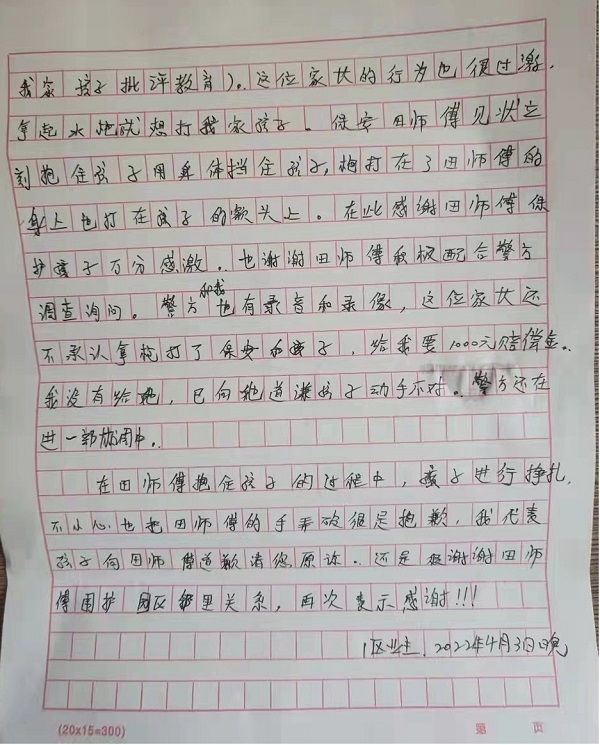 我家孩子批评教育)。这位家长的行为也很过激,
拿起水枪就想打我家孩子。保安田师傅见状立
刻抱住孩子用身体挡住孩子,枪打在了田师傅的
身上也打在孩子的额头上。在此感谢田师傅保
护孩子万分感激。也谢谢田师傅积极配合警方
调查询问。警方和我也有录音和录像,这位家长还
不承认拿枪打了保安和孩子,给我要1000元赔偿金。
我没有给她,已向她道谦孩子动手不对。警方还在
进一步协调中。
在田师傅抱住孩子的过程中,孩子进行挣扎,
不小心也把田师傅的手弄破很是抱歉,我代表
孩子向田师傅道歉请您原谅。还是很谢谢田师
傅围护园区邻里关系,再次表示感谢!!!
区业主.2022年4月3日晚
(20x15=300) 第 页